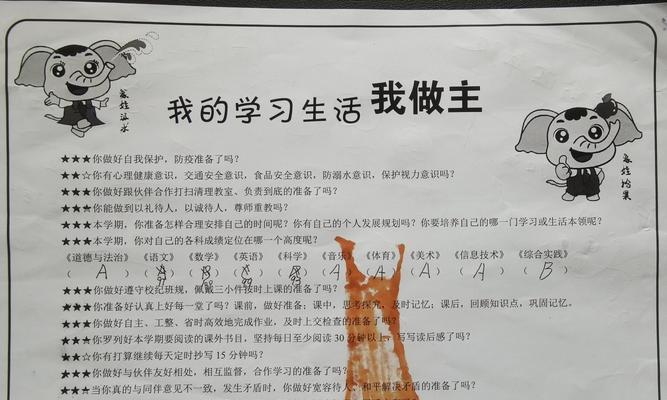 我的学习生活 我做主
★★★你做好自我保护，防疫准备了吗？
★★☆你有心理健康意识，交通安全意识，食品安全意识，防溺水意识，保护视力意识吗？
★★★你做好跟伙伴合作打扫清理教室、负责到底的准备了吗？
★★★你能做到以礼待人，以诚待人，尊师重教吗？
★★★本学期，你准备怎样合理安排自己的时间呢？你有自己的个人发展规划吗？你要培养自己的哪一门学习或生活本领呢？
★★★本学期，你对自己的各科成绩定位在哪一个高度呢？
《道德与法治》《语文》《数学》《英语》《科学》《音乐》《体育》《美术》《信息技术》《综合实践》
（ A ）（ ）（ ）（ ）（ ）（ A ）（ A ）（ A ）（ A ）（ B ）
★★★你做好遵守校纪班规，佩戴三小件按时上课的准备了吗？
★★☆你准备好认真上好每一堂了吗？课前，做好准备；课中，思考探究，及时记忆；课后，回顾知识点，巩固记忆。
★★★你做好自主、工整、省时高效地完成作业，及时上交检查的准备了吗？
★★★你罗列好本学期要阅读的课外书目，坚持每日至少阅读30分钟以上，写写读后感了吗？
★★☆你有打算继续每天定时抄写15分钟吗？
★★★你做好与伙伴友好相处，相互监督，合作学习的准备了吗？
★★★当你真的与同伴意见不一致，发生矛盾时，你做好宽容待人、和平解决矛盾的准备了吗？